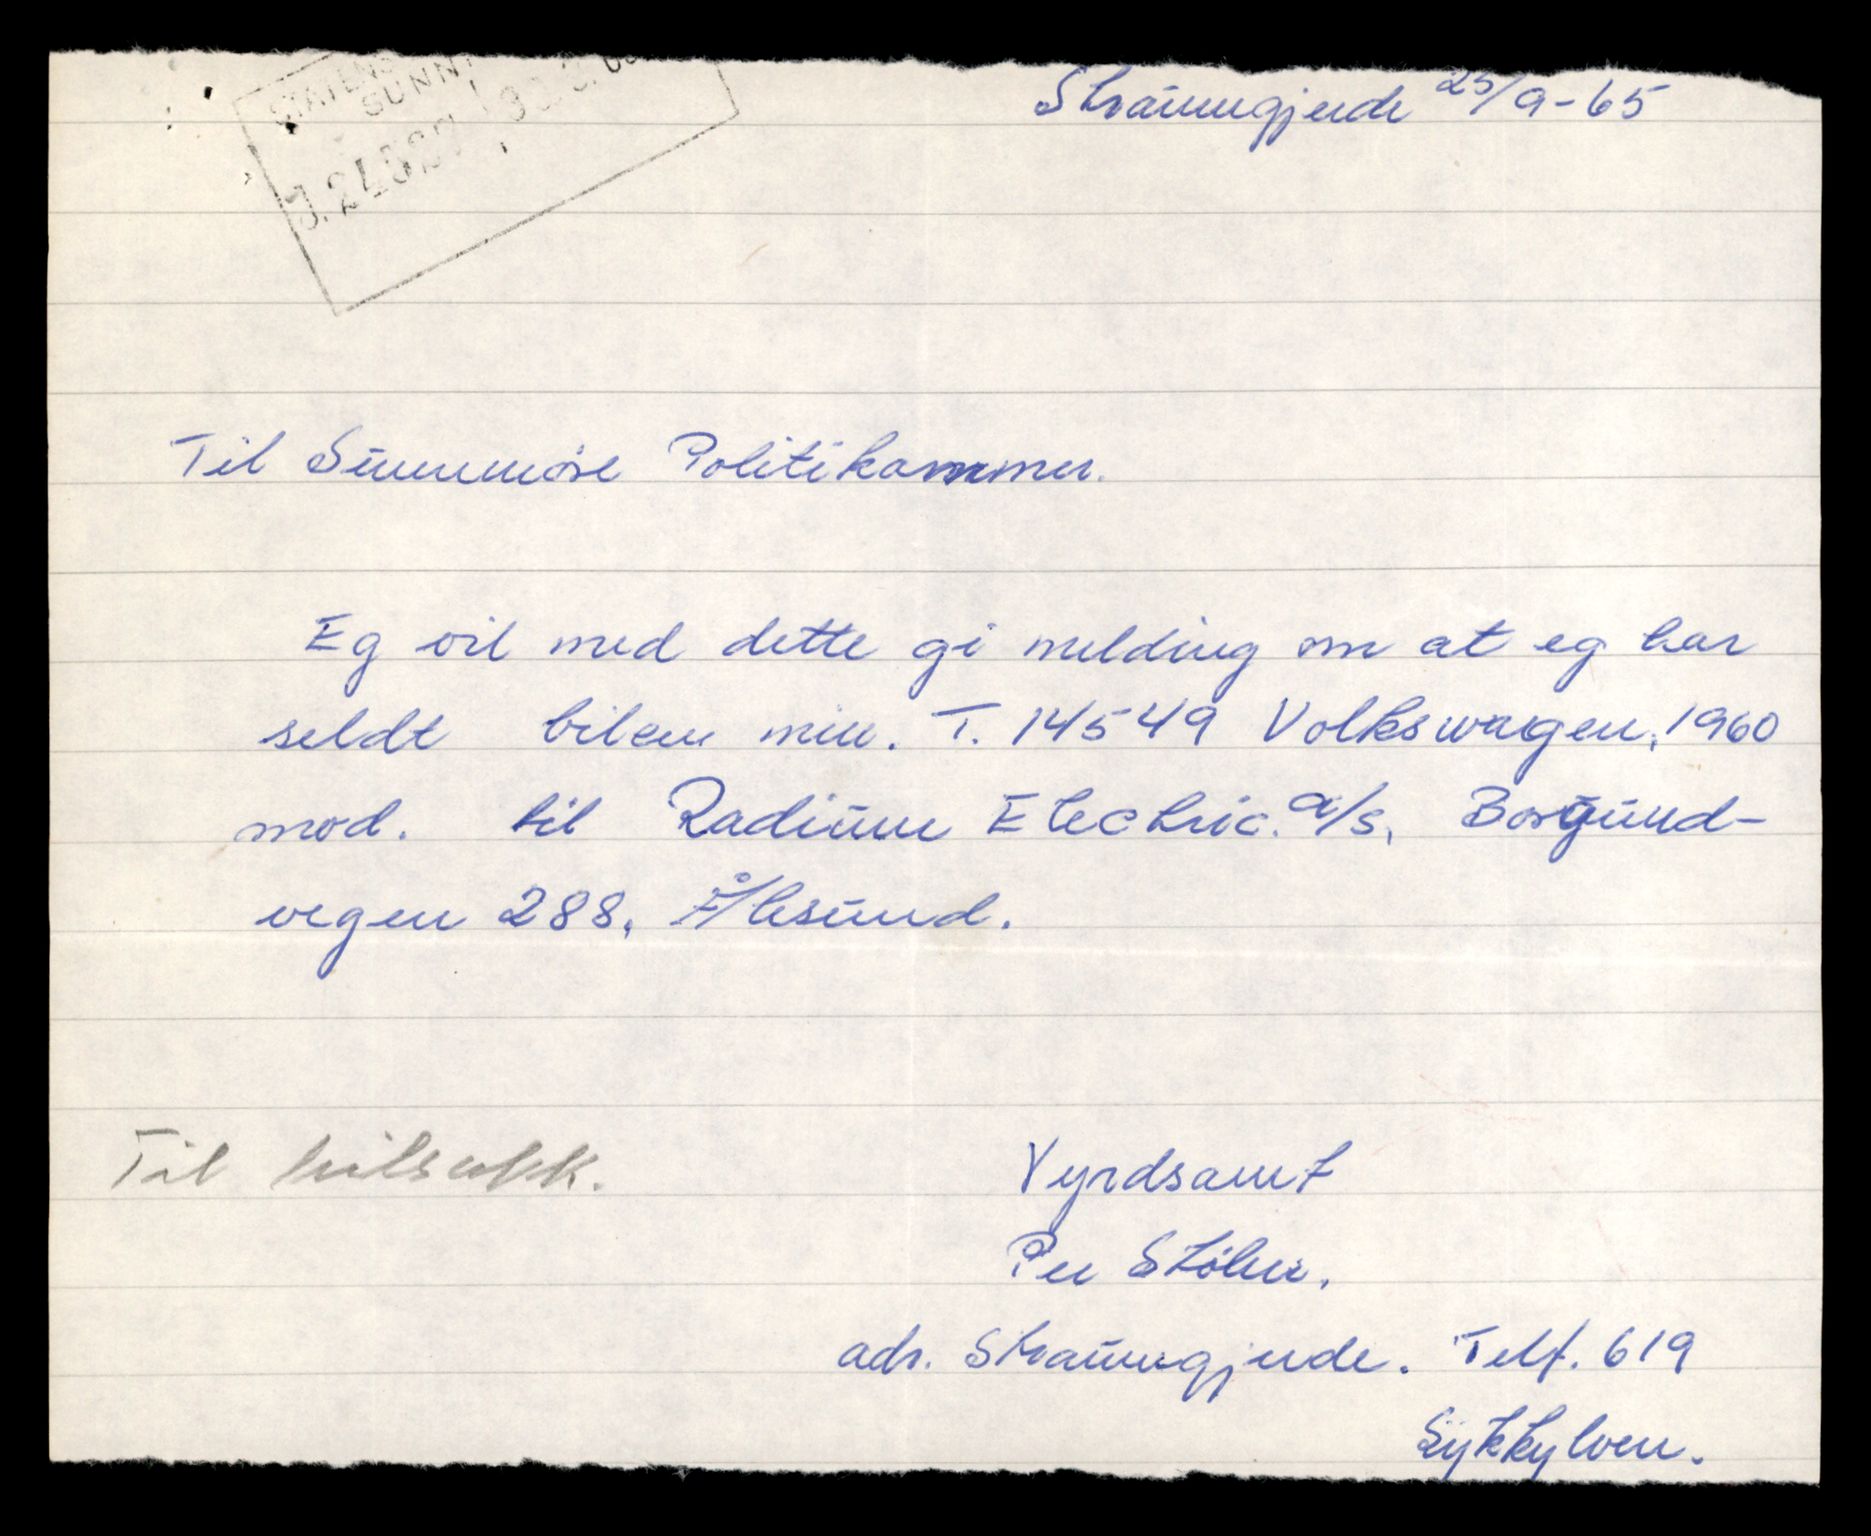 STATENS
SUNN
Straumgjerde 25/9-65
Til Sunnmøre Politikammer.
Eg vil med dette gi melding om at eg har
seldt bilen min. T. 14549 Volkswagen, 1960
mod. til Radium Electric. a/s, Borgund-
vegen 288, Ålesund.
Til bilsakk.
Vyrdsamt
Per
adr. Straumgjerde. Telf. 619
Sykkylven.